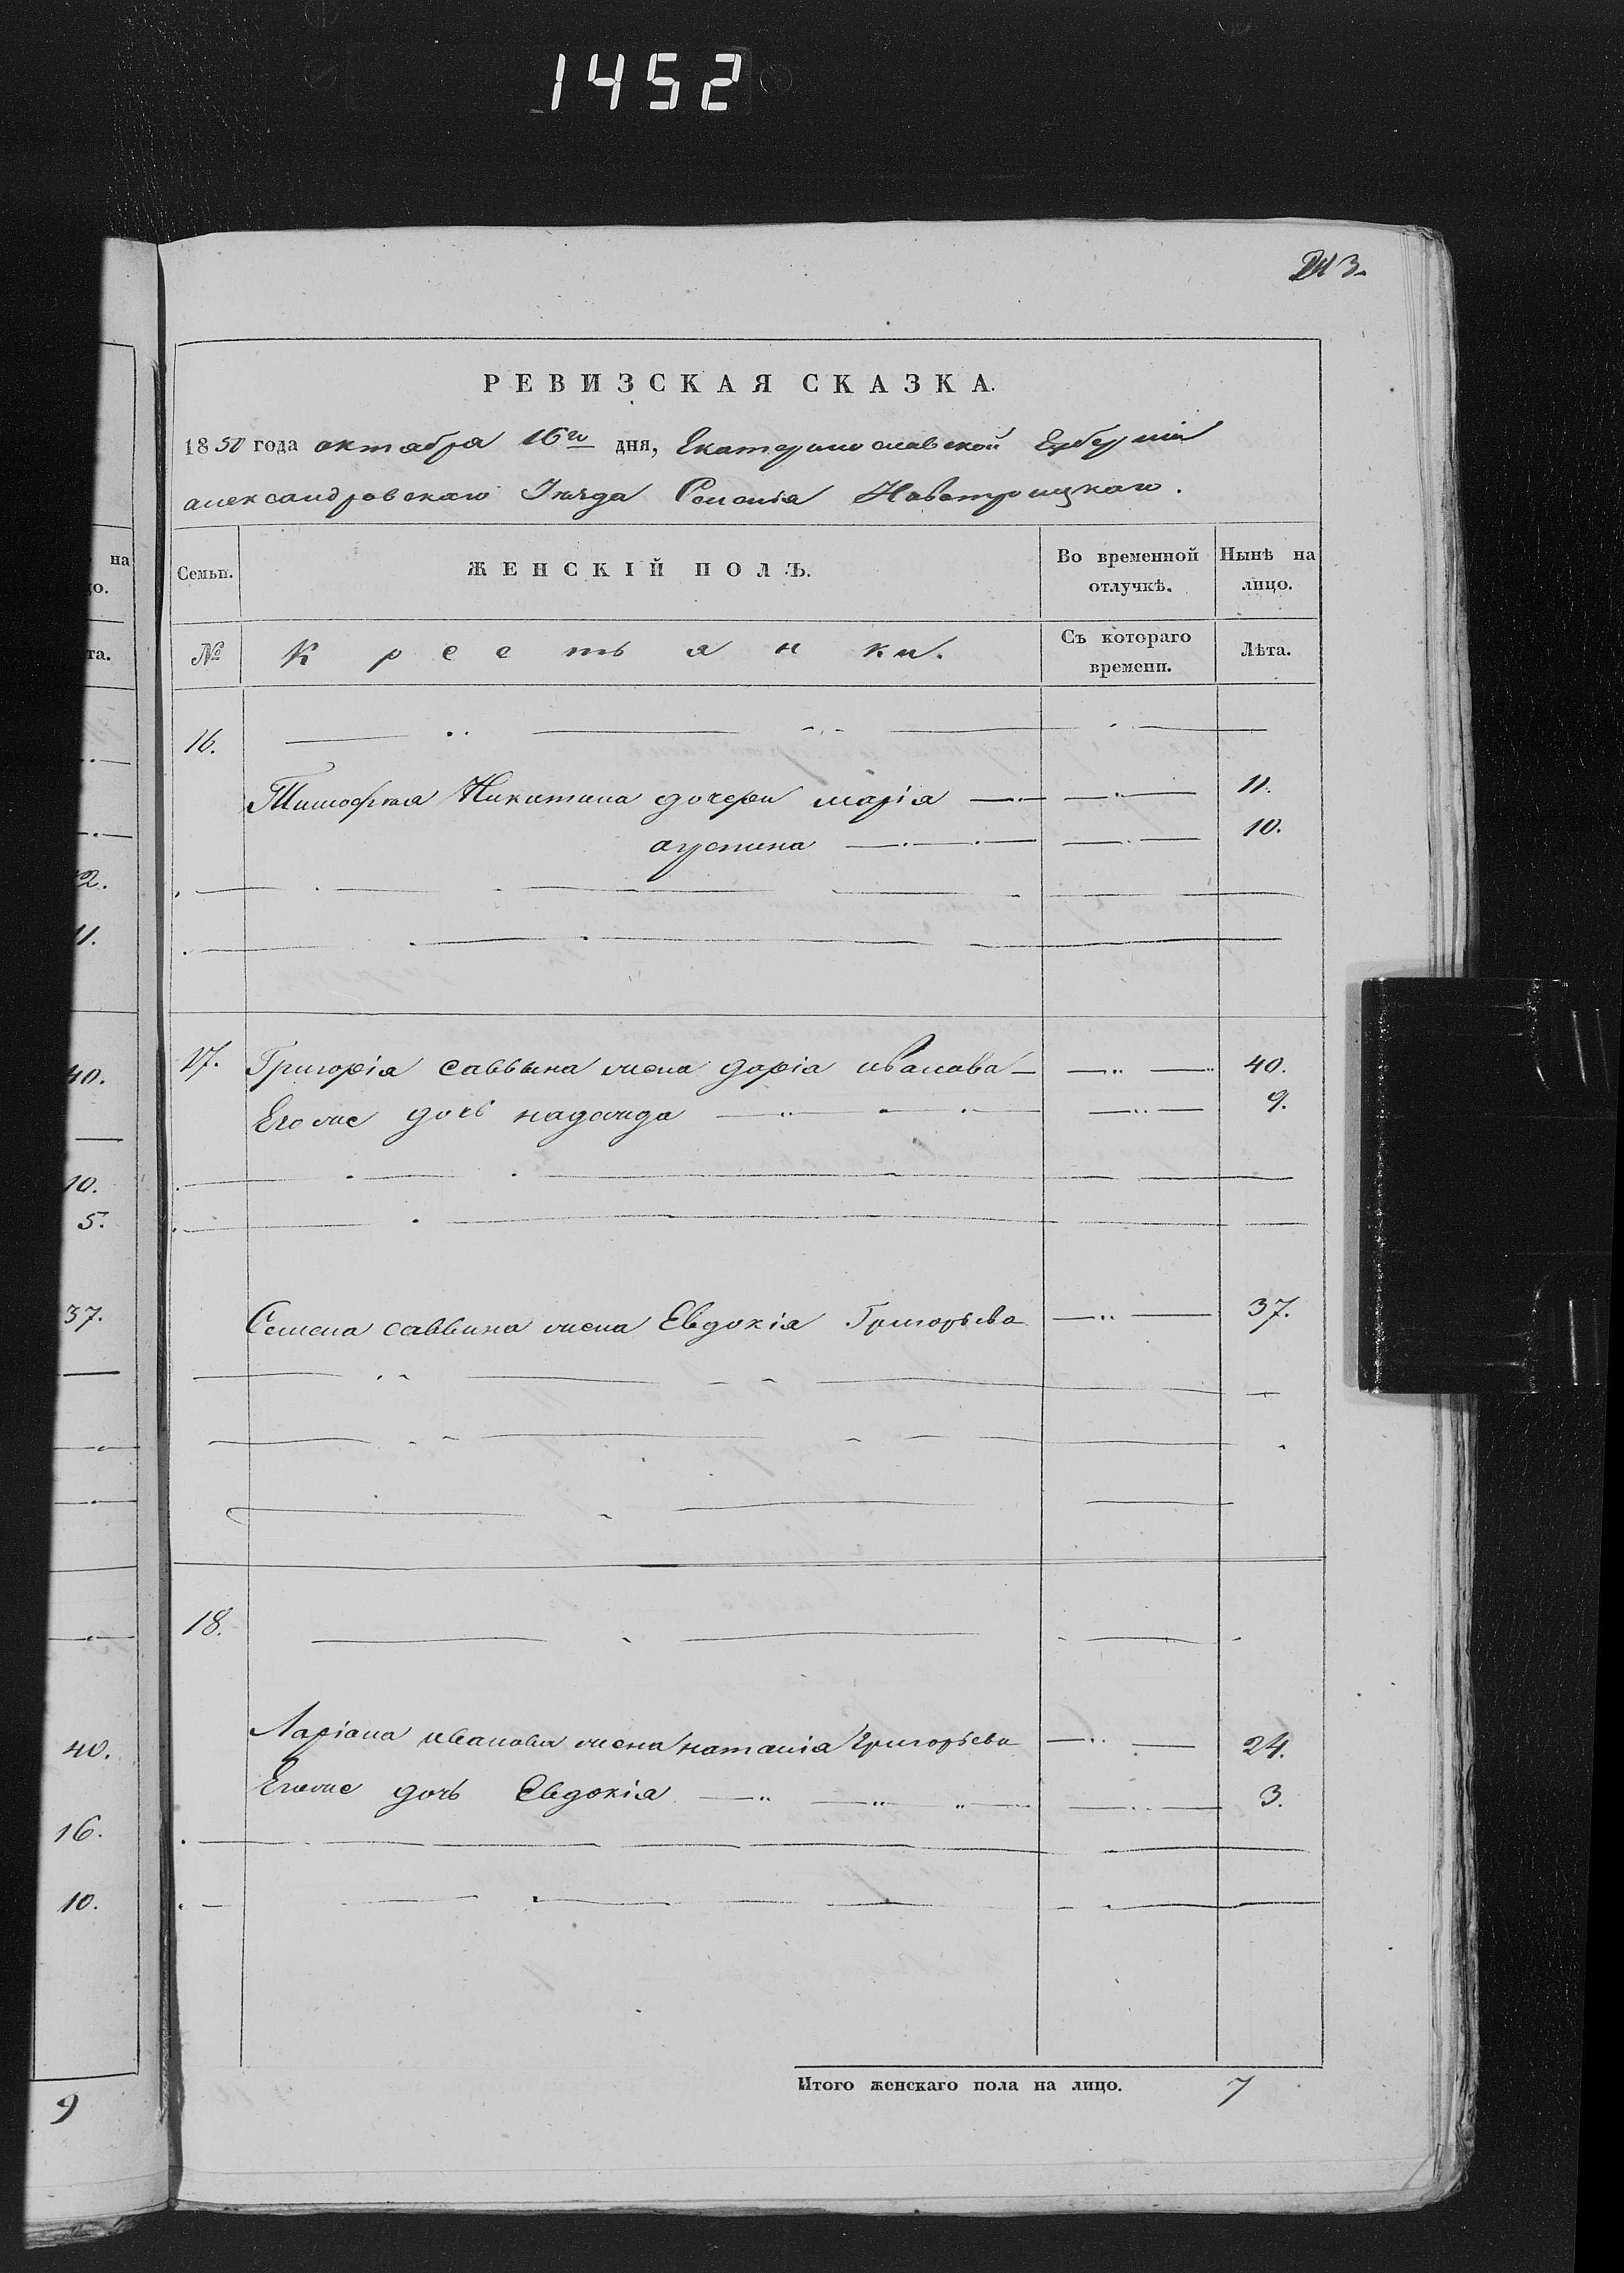 1452
РЕВИЗСКАЯ СКАЗКА.
1850 года октября 16го дня, Екатеринославской Губерніи
александровскаго Уезда Селенія Новотроицкаго.
на
цо.
та.
2.
11.
40.
10.
5.
37.
40.
16.
10.
9
Семьи. ЖЕНСКІЙ ПОЛЪ. Во временной отлучкѣ. Нынѣ на лицо.
№ Крестьянки. Съ котораго времени. Лѣта.
16.
Тимофея Никитина дочери марія 11.
агрепина 10.
17. Григорія саввина жена дарія иванова 40.
Его же дочь надежда 9.
Семена саввина жена Евдокія Григорьева 37.
18.
Ларіана иванова жена наталія Григорьева 24.
Его же дочь Евдокія 3.
Итого женскаго пола на лицо. 7